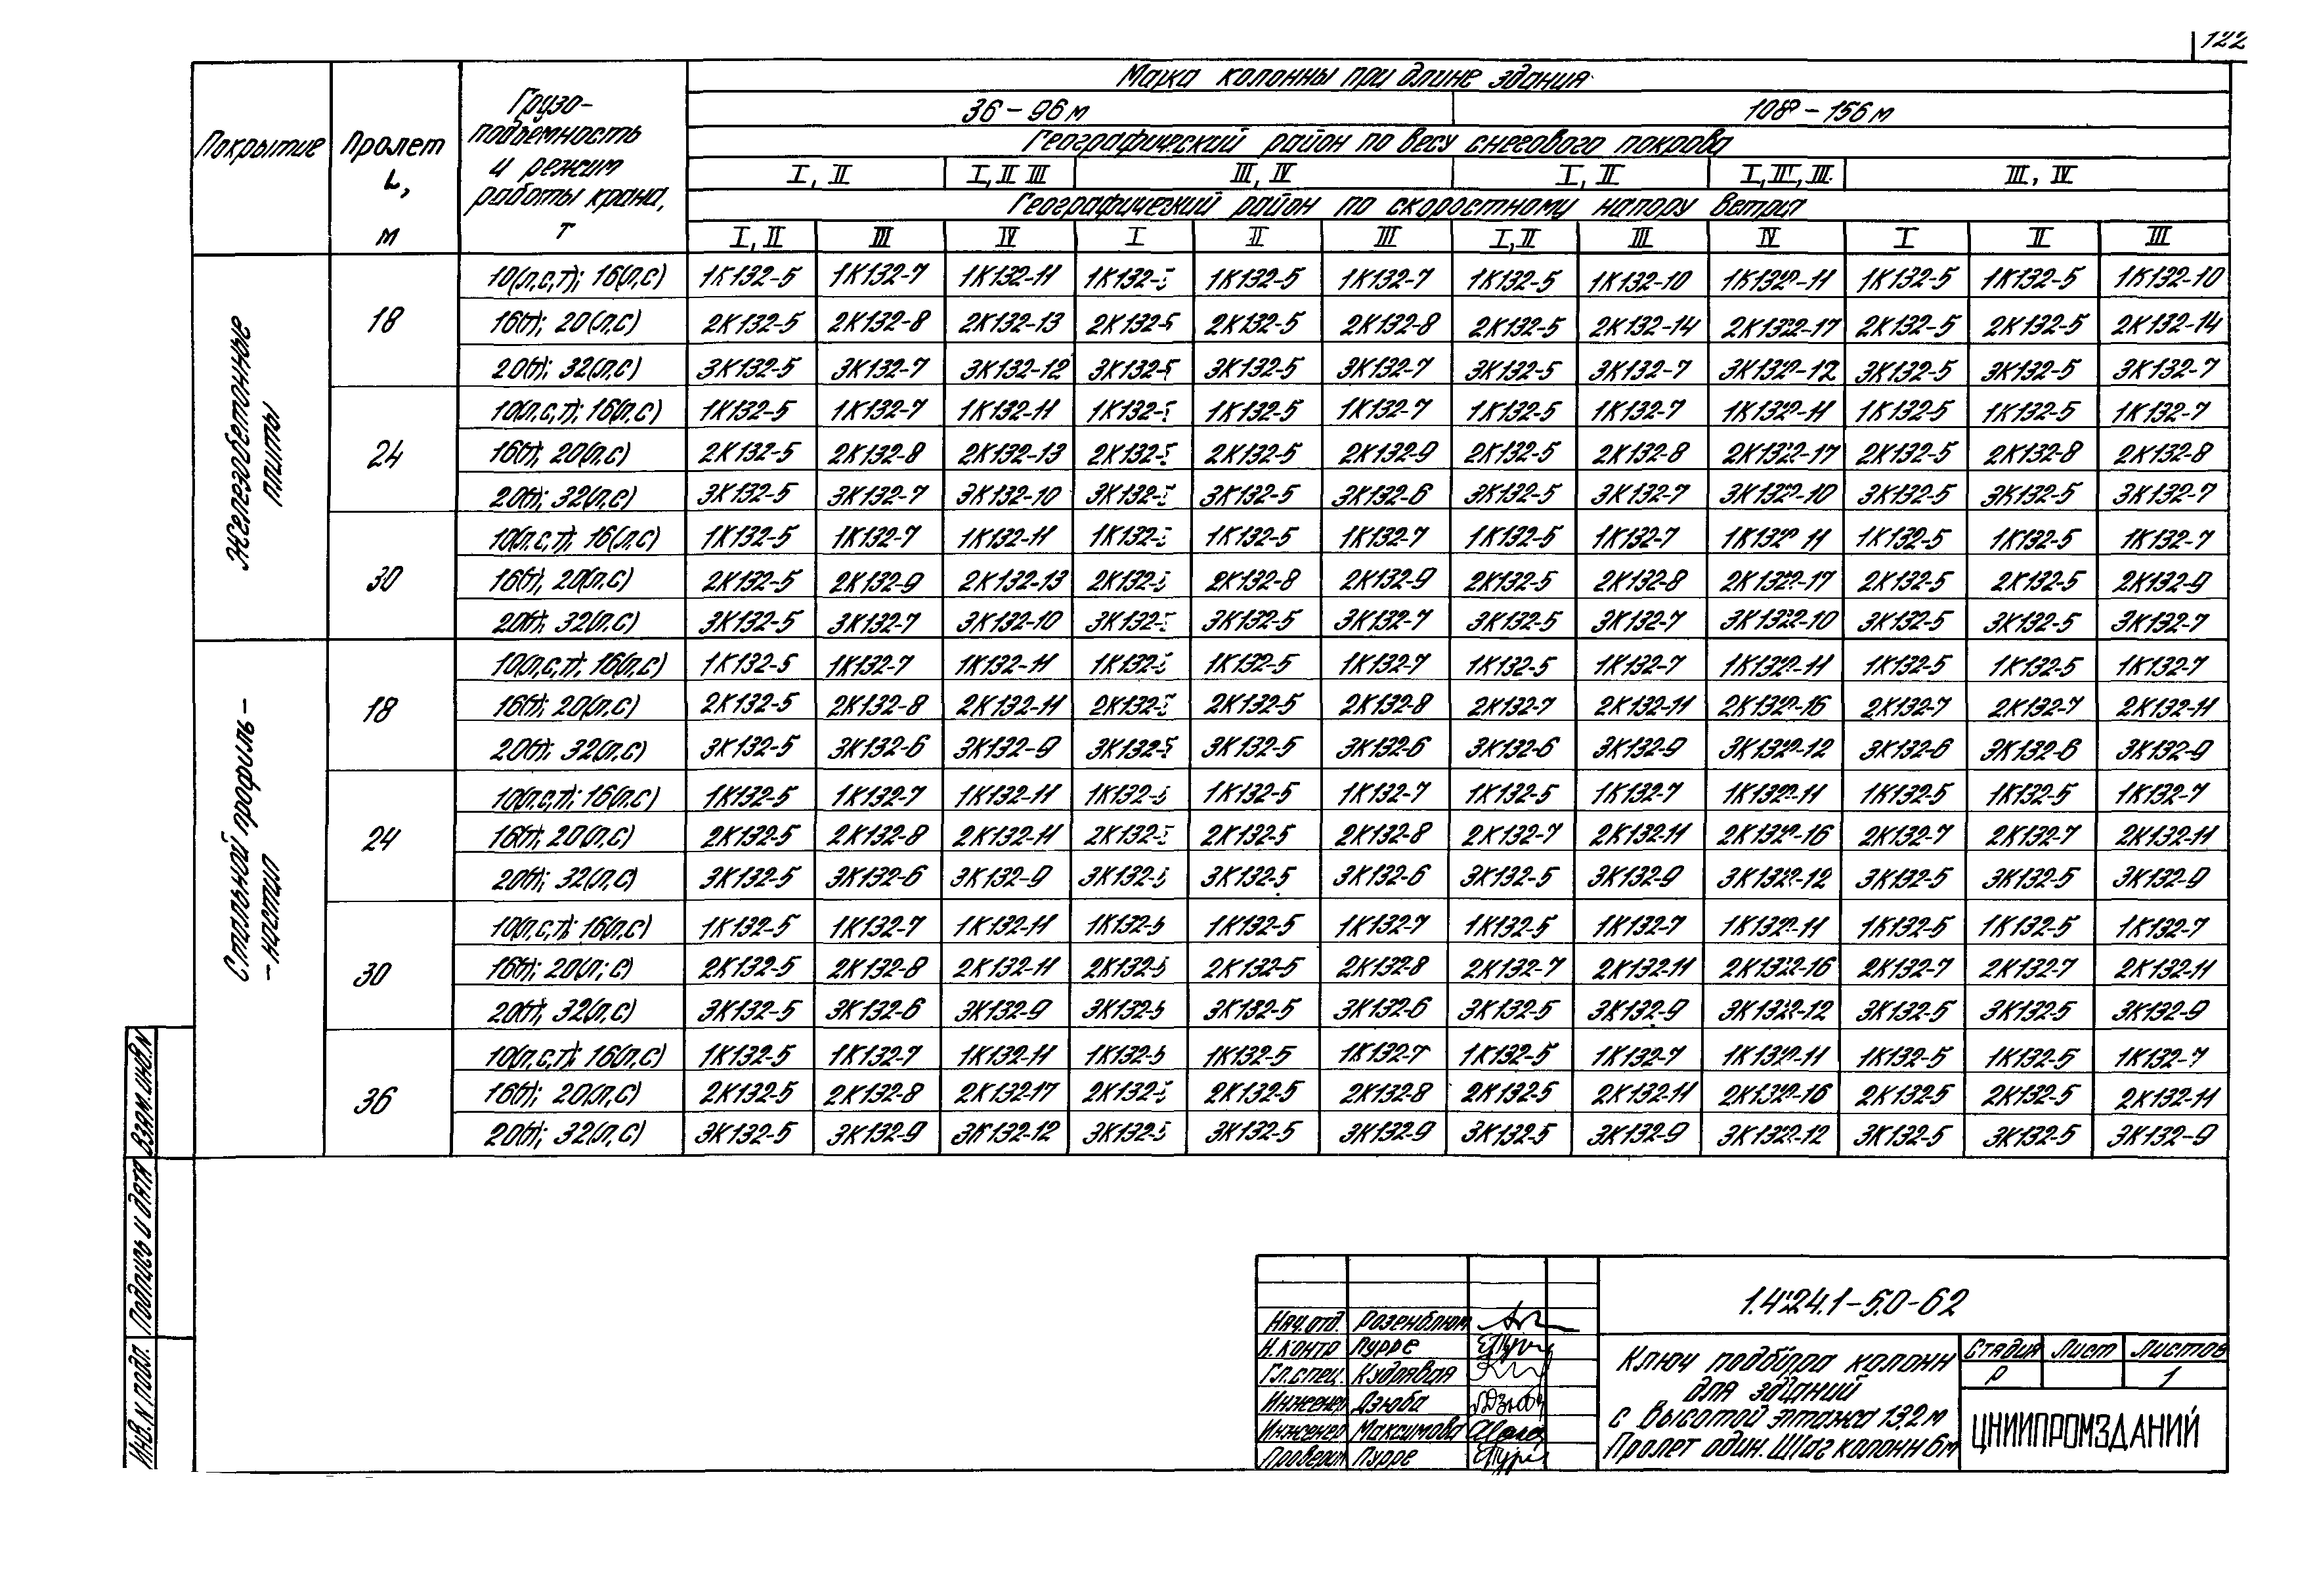 122
Марка колонны при длине здания
Покрытие
Пролет L, м
Грузо-
подъемность
и режим
работы крана,
т
36 – 96 м 108 – 156 м
Географический район по весу снегового покрова
I, II I, II III III, IV I, II I, II, III III, IV
Географический район по скоростному напору ветра
I, II III IV I II III I, II III IV I II III
Железобетонные плиты
18
10(л,с,т); 16(л,с) 1К132-5 1К132-7 1К132-11 1К132-5 1К132-5 1К132-7 1К132-5 1К132-10 1К132-11 1К132-5 1К132-5 1К132-10
16(т); 20(л,с) 2К132-5 2К132-8 2К132-13 2К132-5 2К132-5 2К132-8 2К132-5 2К132-14 2К132-17 2К132-5 2К132-5 2К132-14
20(т); 32(л,с) 3К132-5 3К132-7 3К132-12 3К132-5 3К132-5 3К132-7 3К132-5 3К132-7 3К132-12 3К132-5 3К132-5 3К132-7
24
10(л,с,т); 16(л,с) 1К132-5 1К132-7 1К132-11 1К132-5 1К132-5 1К132-7 1К132-5 1К132-7 1К132-11 1К132-5 1К132-5 1К132-7
16(т); 20(л,с) 2К132-5 2К132-8 2К132-13 2К132-5 2К132-5 2К132-9 2К132-5 2К132-8 2К132-17 2К132-5 2К132-8 2К132-8
20(т); 32(л,с) 3К132-5 3К132-7 3К132-10 3К132-5 3К132-5 3К132-6 3К132-5 3К132-7 3К132-10 3К132-5 3К132-5 3К132-7
30
10(л,с,т); 16(л,с) 1К132-5 1К132-7 1К132-11 1К132-5 1К132-5 1К132-7 1К132-5 1К132-7 1К132-11 1К132-5 1К132-5 1К132-7
16(т); 20(л,с) 2К132-5 2К132-9 2К132-13 2К132-5 2К132-8 2К132-9 2К132-5 2К132-8 2К132-17 2К132-5 2К132-5 2К132-9
20(т); 32(л,с) 3К132-5 3К132-7 3К132-10 3К132-5 3К132-5 3К132-7 3К132-5 3К132-7 3К132-10 3К132-5 3К132-5 3К132-7
Стальной профиль –
– настил
18
10(л,с,т); 16(л,с) 1К132-5 1К132-7 1К132-11 1К132-5 1К132-5 1К132-7 1К132-5 1К132-7 1К132-11 1К132-5 1К132-5 1К132-7
16(т); 20(л,с) 2К132-5 2К132-8 2К132-11 2К132-5 2К132-5 2К132-8 2К132-7 2К132-11 2К132-16 2К132-7 2К132-7 2К132-11
20(т); 32(л,с) 3К132-5 3К132-6 3К132-9 3К132-5 3К132-5 3К132-6 3К132-6 3К132-9 3К132-12 3К132-6 3К132-6 3К132-9
24
10(л,с,т); 16(л,с) 1К132-5 1К132-7 1К132-11 1К132-5 1К132-5 1К132-7 1К132-5 1К132-7 1К132-11 1К132-5 1К132-5 1К132-7
16(т); 20(л,с) 2К132-5 2К132-8 2К132-11 2К132-5 2К132-5 2К132-8 2К132-7 2К132-11 2К132-16 2К132-7 2К132-7 2К132-11
20(т); 32(л,с) 3К132-5 3К132-6 3К132-9 3К132-5 3К132-5 3К132-6 3К132-5 3К132-9 3К132-12 3К132-5 3К132-5 3К132-9
30
10(л,с,т); 16(л,с) 1К132-5 1К132-7 1К132-11 1К132-5 1К132-5 1К132-7 1К132-5 1К132-7 1К132-11 1К132-5 1К132-5 1К132-7
16(т); 20(л; с) 2К132-5 2К132-8 2К132-11 2К132-5 2К132-5 2К132-8 2К132-7 2К132-11 2К132-16 2К132-7 2К132-7 2К132-11
20(т); 32(л,с) 3К132-5 3К132-6 3К132-9 3К132-5 3К132-5 3К132-6 3К132-5 3К132-9 3К132-12 3К132-5 3К132-5 3К132-9
36
10(л,с,т); 16(л,с) 1К132-5 1К132-7 1К132-11 1К132-5 1К132-5 1К132-7 1К132-5 1К132-7 1К132-11 1К132-5 1К132-5 1К132-7
16(т); 20(л,с) 2К132-5 2К132-8 2К132-17 2К132-5 2К132-5 2К132-8 2К132-5 2К132-11 2К132-16 2К132-5 2К132-5 2К132-11
20(т); 32(л,с) 3К132-5 3К132-9 3К132-12 3К132-5 3К132-5 3К132-9 3К132-5 3К132-9 3К132-12 3К132-5 3К132-5 3К132-9
Взам.инв.N
Подпись и дата
Инв.N подл.
1.424.1-5.0-62
Нач.отд. Розенблюм
Н.контр Пурре
Гл.спец. Кудрявая
Инженер Дзюба
Инженер Максимова
Проверил Пурре
Ключ подбора колонн
для зданий
с высотой этажа 13,2 м
Пролет один. Шаг колонн 6м
Стадия Лист Листов
Р 1
ЦНИИПРОМЗДАНИЙ